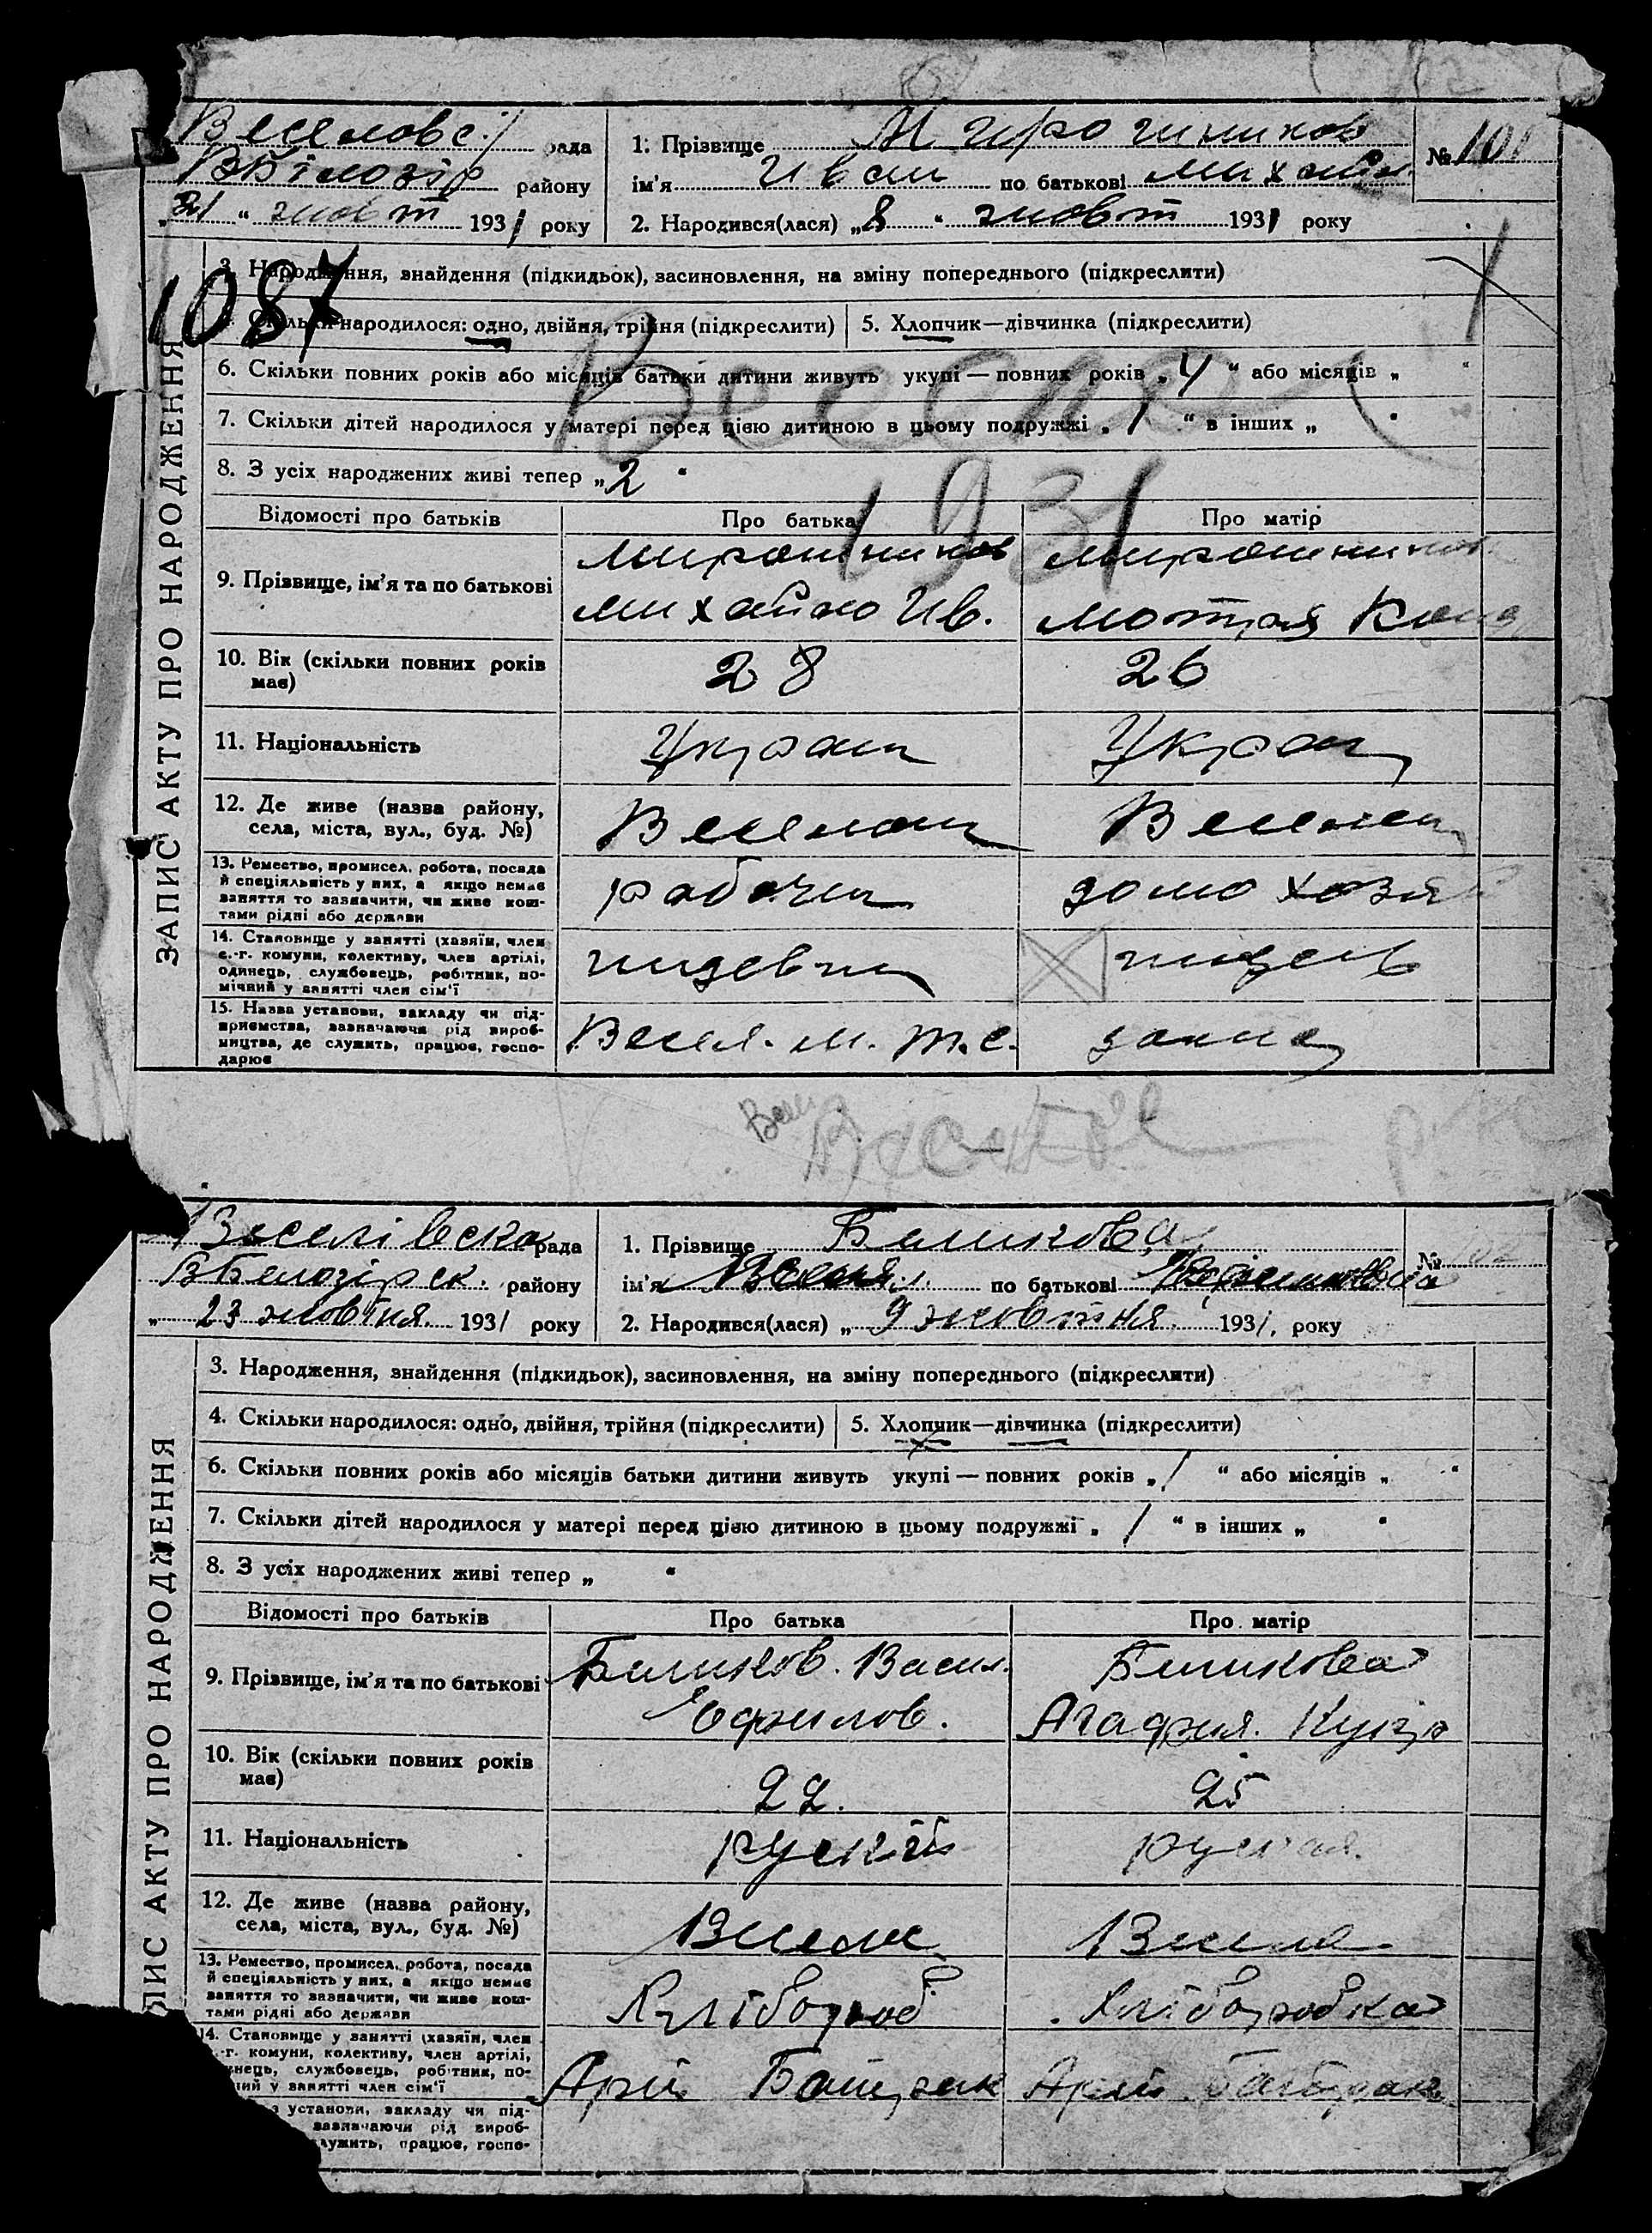 Веселовс. рада
ВБілозір району
„21“ жовт 1931 року
1. Прізвище Мирошников
ім’я Иван по батькові Михайл.
2. Народився(лася) „8“ жовт 1931 року
№ 101
1087
ЗАПИС АКТУ ПРО НАРОДЖЕННЯ
3. Народження, знайдення (підкидьок), засиновлення, на зміну попереднього (підкреслити)
4. Скільки народилося: одно, двійня, трійня (підкреслити) 5. Хлопчик—дівчинка (підкреслити)
6. Скільки повних років або місяців батьки дитини живуть укупі — повних років „4“ або місяців „ “
7. Скільки дітей народилося у матері перед цією дитиною в цьому подружжі „1“ в інших „ “
8. З усіх народжених живі тепер „2“
Веселе
1931
Відомості про батьків Про батька Про матір
9. Прізвище, ім’я та по батькові
Мирошников
Михайло Ив.
Мирошников
Мотря
10. Вік (скільки повних років має)
28 26
11. Національність
Украин Украин
12. Де живе (назва району,
села, міста, вул., буд. №)
13. Ремество, промисел, робота, посада
й спеціяльність у них, а якщо немає
заняття то зазначити, чи живе кош-
тами рідні або держави
рабочий домохозя
14. Становище у занятті (хазяїн, член
с.-г. комуни, колективу, член артілі,
одинець, службовець, робітник, по-
мічний у занятті член сім’ї
15. Назва установи, закладу чи під-
приємства, зазначаючи рід вироб-
ництва, де служить, працює, госпо-
дарює
Весел. м. т. с.
Весел
Веселівска рада
ВБелозірск. району
„23 жовтня 1931 року
1. Прізвище Беликова
ім’я по батькові
2. Народився(лася) „9 жовтня 1931, року
№ 102
ПИС АКТУ ПРО НАРОДЖЕННЯ
3. Народження, знайдення (підкидьок), засиновлення, на зміну попереднього (підкреслити)
4. Скільки народилося: одно, двійня, трійня (підкреслити) 5. Хлопчик—дівчинка (підкреслити)
6. Скільки повних років або місяців батьки дитини живуть укупі — повних років „1“ або місяців „ “
7. Скільки дітей народилося у матері перед цією дитиною в цьому подружжі „1“ в інших „ “
8. З усіх народжених живі тепер „ “
Відомості про батьків Про батька Про матір
9. Прізвище, ім’я та по батькові
Беликов. Васил.
Ефимов.
Беликова
Агафия. Кузь
10. Вік (скільки повних років має)
22. 25
11. Національність
руский руская.
12. Де живе (назва району,
села, міста, вул., буд. №)
Веселе Веселе
13. Ремество, промисел, робота, посада
й спеціяльність у них, а якщо немає
заняття то зазначити, чи живе кош-
тами рідні або держави
Хлібороб Хліборобка
14. Становище у занятті (хазяїн, член
.-г. комуни, колективу, член артілі,
инець, службовець, робітник, по-
ний у занятті член сім’ї
з установи, закладу чи під-
зазначаючи рід вироб-
лужить, працює, госпо-